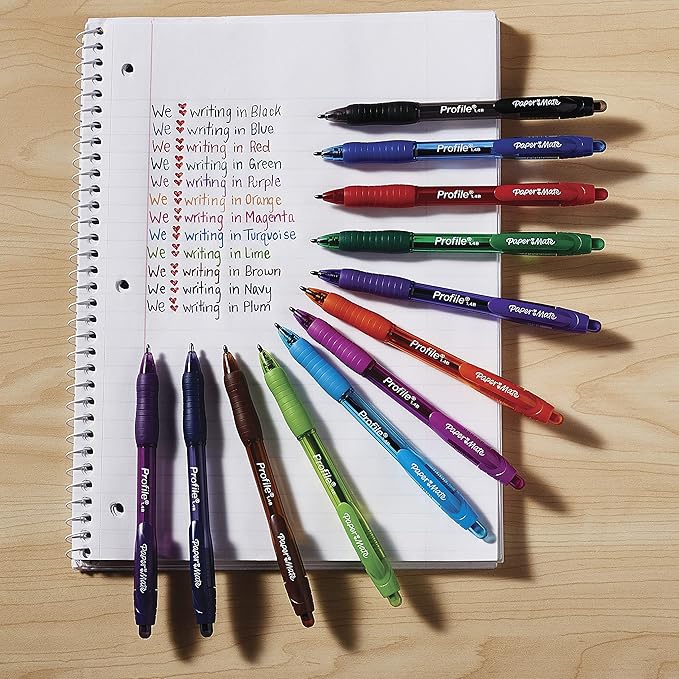 We ♥ writing in Black
We ♥ writing in Blue
We ♥ writing in Red
We ♥ writing in Green
We ♥ writing in Purple
We ♥ writing in Orange
We ♥ writing in Magenta
We ♥ writing in Turquoise
We ♥ writing in Lime
We ♥ writing in Brown
We ♥ writing in Navy
We ♥ writing in Plum
Profile 1.4B Paper Mate
Profile 1.4B Paper Mate
Profile 1.4B Paper Mate
Profile 1.4B Paper Mate
Profile 1.4B Paper Mate
Profile 1.4B Paper Mate
Profile 1.4B Paper Mate
Profile 1.4B Paper Mate
Profile 1.4B Paper Mate
Profile 1.4B Paper Mate
Profile 1.4B Paper Mate
Profile 1.4B Paper Mate